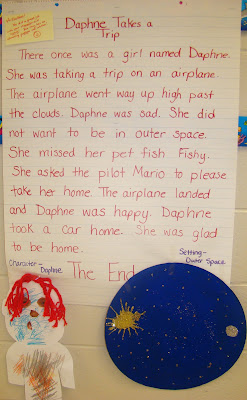 Daphne Takes a
Trip
There once was a girl named Daphne.
She was taking a trip on an airplane.
The airplane went way up high past
the clouds. Daphne was sad. She did
not want to be in outer space.
She missed her pet fish Fishy.
She asked the pilot Mario to please
take her home. The airplane landed
and Daphne was happy. Daphne
took a car home. She was glad
to be home.
Character-
Daphne
The End
Setting-
Outer Space